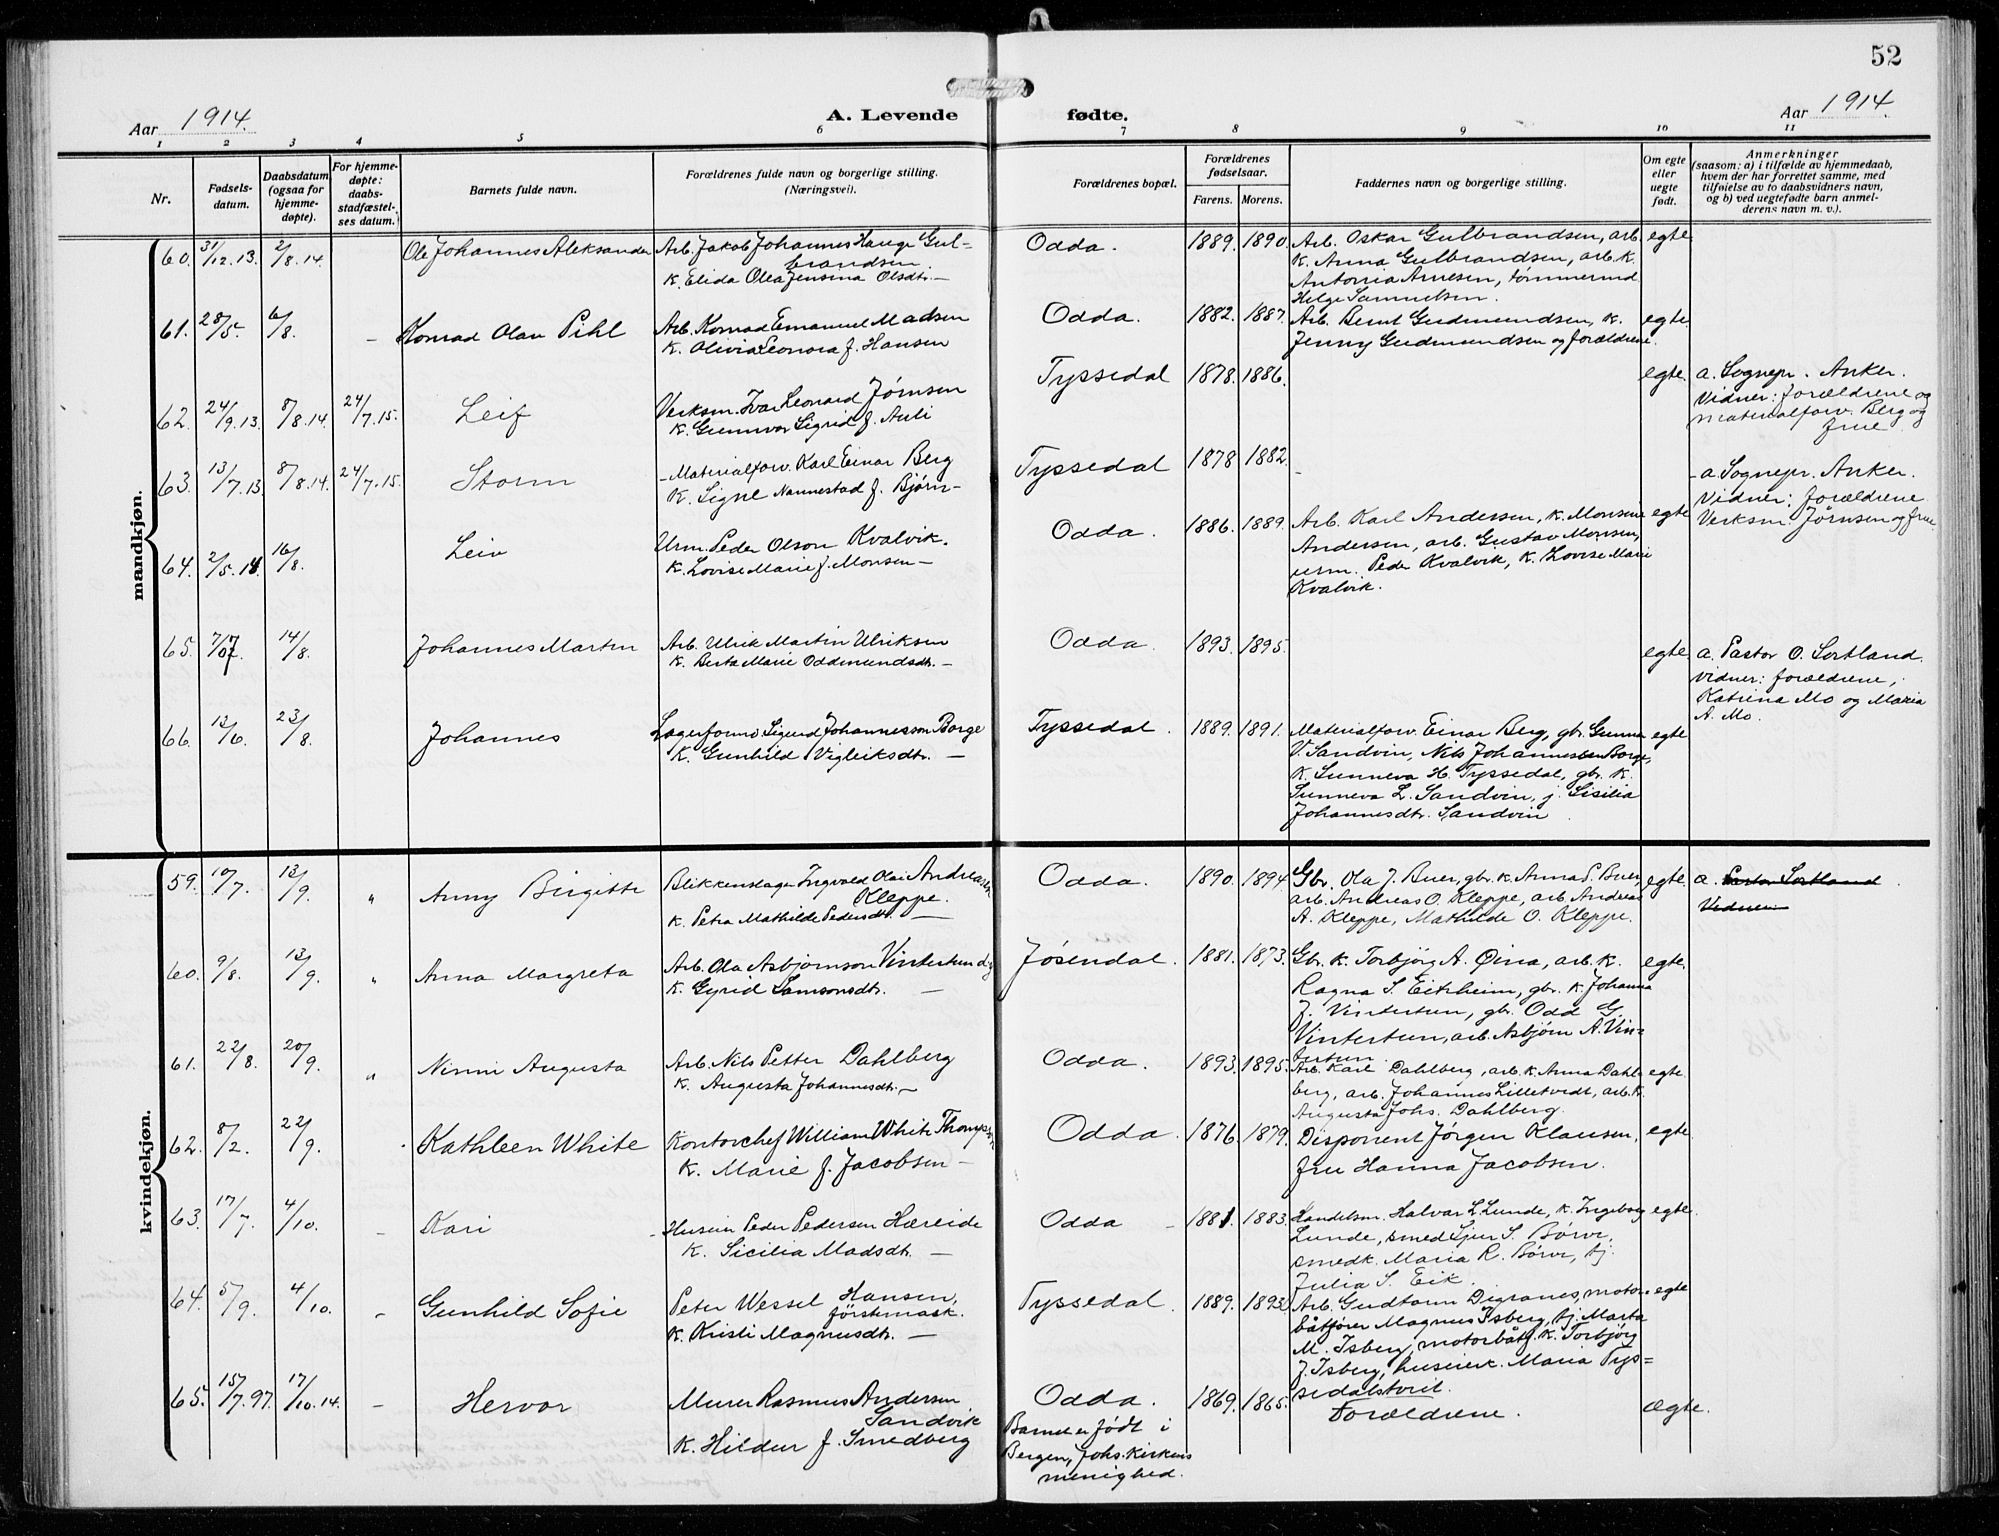 52
Aar 1914. A. Levende fødte. Aar 1914.
1 2 3 4 5 6 7 8 9 10 11
Nr.
Fødsels-
datum.
Daabsdatum
(ogsaa for
hjemme-
døpte).
For hjemme-
døpte:
daabs-
stadfæstel-
ses datum.
Barnets fulde navn.
Forældrenes fulde navn og borgerlige stilling.
(Næringsvei).
Forældrenes bopæl.
Forældrenes
fødselsaar.
Farens. Morens.
Faddernes navn og borgerlige stilling.
Om egte
eller
uegte
født.
Anmerkninger
(saasom: a) i tilfælde av hjemmedaab,
hvem der har forrettet samme, med
tilføielse av to daabsvidners navn,
og b) ved uegtefødte barn anmel-
derens navn m. v.).
mandkjøn.
60. 31/12.13. 2/8.14. Ole Johannes Aleksander
Arb. Jakob Johannes Hauge Gul-
brandsen
K. Elida Olea Jensina Olsdtr. —
Odda. 1889. 1890.
Arb. Oskar Gulbrandsen, arb.
K. Anna Gulbrandsen, arb. K.
Antonia Arnesen, tømmermd
Helge Samuelsen.
egte
61. 28/5. 6/8. – Konrad Olav Pihl
Arb. Konrad Emanuel Madsen
K. Olivia Leonora f. Hansen
Odda. 1882. 1887.
Arb. Bernt Gudmundsen, K.
Jenny Gudmundsen og forældrene.
egte
62. 24/9.13. 8/8.14. 24/7.15. Leif
Verksm. Ivar Leonard Jørnsen
K. Gunnvor Sigrid f. Auli
Tyssedal 1878. 1886.
egte.
a. Sognepr. Anker.
Vidner: forældrene og
materialforv. Berg og
frue
63. 13/7.13. 8/8.14. 24/7.15. Storm
Materialforv. Karl Einar Berg
K. Signe Nannestad f. Bjørn-
Tyssedal 1878 1882.
a Sognepr. Anker.
Vidner: forældrene
Verksm. Jørnsen og frue
64. 2/5.14. 16/8. Leiv
Urm. Peder Olson Kvalvik.
K. Lovise Marie f. Monsen —
Odda. 1886. 1889.
Arb. Karl Andersen, K. Monsine
Andersen, arb. Gustav Monsen,
urm. Peder Kvalvik, K. Lovise Marie
Kvalvik.
egte
65. 7/7. 14/8. Johannes Martin
Arb. Ulrik Martin Ulriksen
K. Berta Marie Oddmundsdtr. —
Odda. 1893. 1895.
egte.
a. Pastor O. Sortland.
vidner: forældrene,
Katrina Mo og Maria
A. Mo.
66. 12/6. 23/8. Johannes
Lagerformd Sigurd Johannesson Borge
K. Gunhild Vigleiksdtr. —
Tyssedal. 1889. 1891.
Materialforv. Einar Berg, gbr. Gunnar
V. Sandvin, Nils Johannessen Borge,
K. Sunneva H. Tyssedal, gbr. K.
Sunneva L. Sandvin, j. Sisilia
Johannesdtr. Sandvin
egte
kvindekjøn.
59. 10/7. 13/9. " Anny Birgitte
Blikkenslager Ingvald Olai Andreassen
Kleppe.
K. Petra Mathilde Pedersdtr. —
Odda. 1890. 1894.
Gbr. Ola J. Buer, gbr. K. Anna P. Buer,
arb. Andreas O. Kleppe, arb. Andreas
A. Kleppe, Mathilde O. Kleppe.
egte.
a. Pastor Sortland.
Vidner:
60. 9/8. 13/9. " Anna Margreta
Arb. Ola Asbjørnson Vintertun
K. Gyrid Samsonsdtr. —
Jøsendal. 1881. 1873.
Gbr. K. Torbjørg A. Øina, arb. K.
Ragna S. Eitrheim, gbr. K. Johanna
J. Vintertun, gbr. Odd G.
Vintertun, arb. Asbjørn A. Vin-
tertun.
egte.
61. 22/8. 20/9. " Ninni Augusta
Arb. Nils Petter Dahlberg
K. Augusta Johannesdtr. —
Odda. 1893. 1895.
Arb. Karl Dahlberg, arb. K. Anna Dahl-
berg, arb. Johannes Lilletvedt, arb. K.
Augusta Johs. Dahlberg.
egte.
62. 8/2. 22/9. Kathleen White
Kontorchef William White Thompson
K. Marie f. Jacobsen —
Odda. 1876. 1879.
Disponent Jørgen Klausen,
fru Hanna Jacobsen.
egte.
63. 17/7. 4/10. – Kari
Huseier Peder Pedersen Hæreide
K. Sicilia Madsdtr. —
Odda 1881. 1883.
Handelsm. Halvar L. Lunde, K. Ingeborg
Lunde, smed Sjur S. Børve,
smedk. Maria R. Børve, pj.
Julia S. Eik.
egte.
64. 5/9. 4/10. – Gunhild Sofie
Peter Wessel Hansen,
førstmask.
K. Kristi Magnusdtr. —
Tyssedal. 1889. 1893.
Arb. Gudtorm Digranes, motor-
båtfører Magnus Isberg, pj. Marta
M. Isberg, motorbåtf. K. Torbjørg
J. Isberg, huseierk. Maria Tys-
sedalstveit.
egte
65. 15/7.97. 17/10.14. – Hervor
Murer Rasmus Andersen
Sandvik
K. Hildur f. Smedberg
Odda.
Barnet er født i
Bergen, Johs. kirkens
menighed.
1869. 1865.
Forældrene.
Ægte.